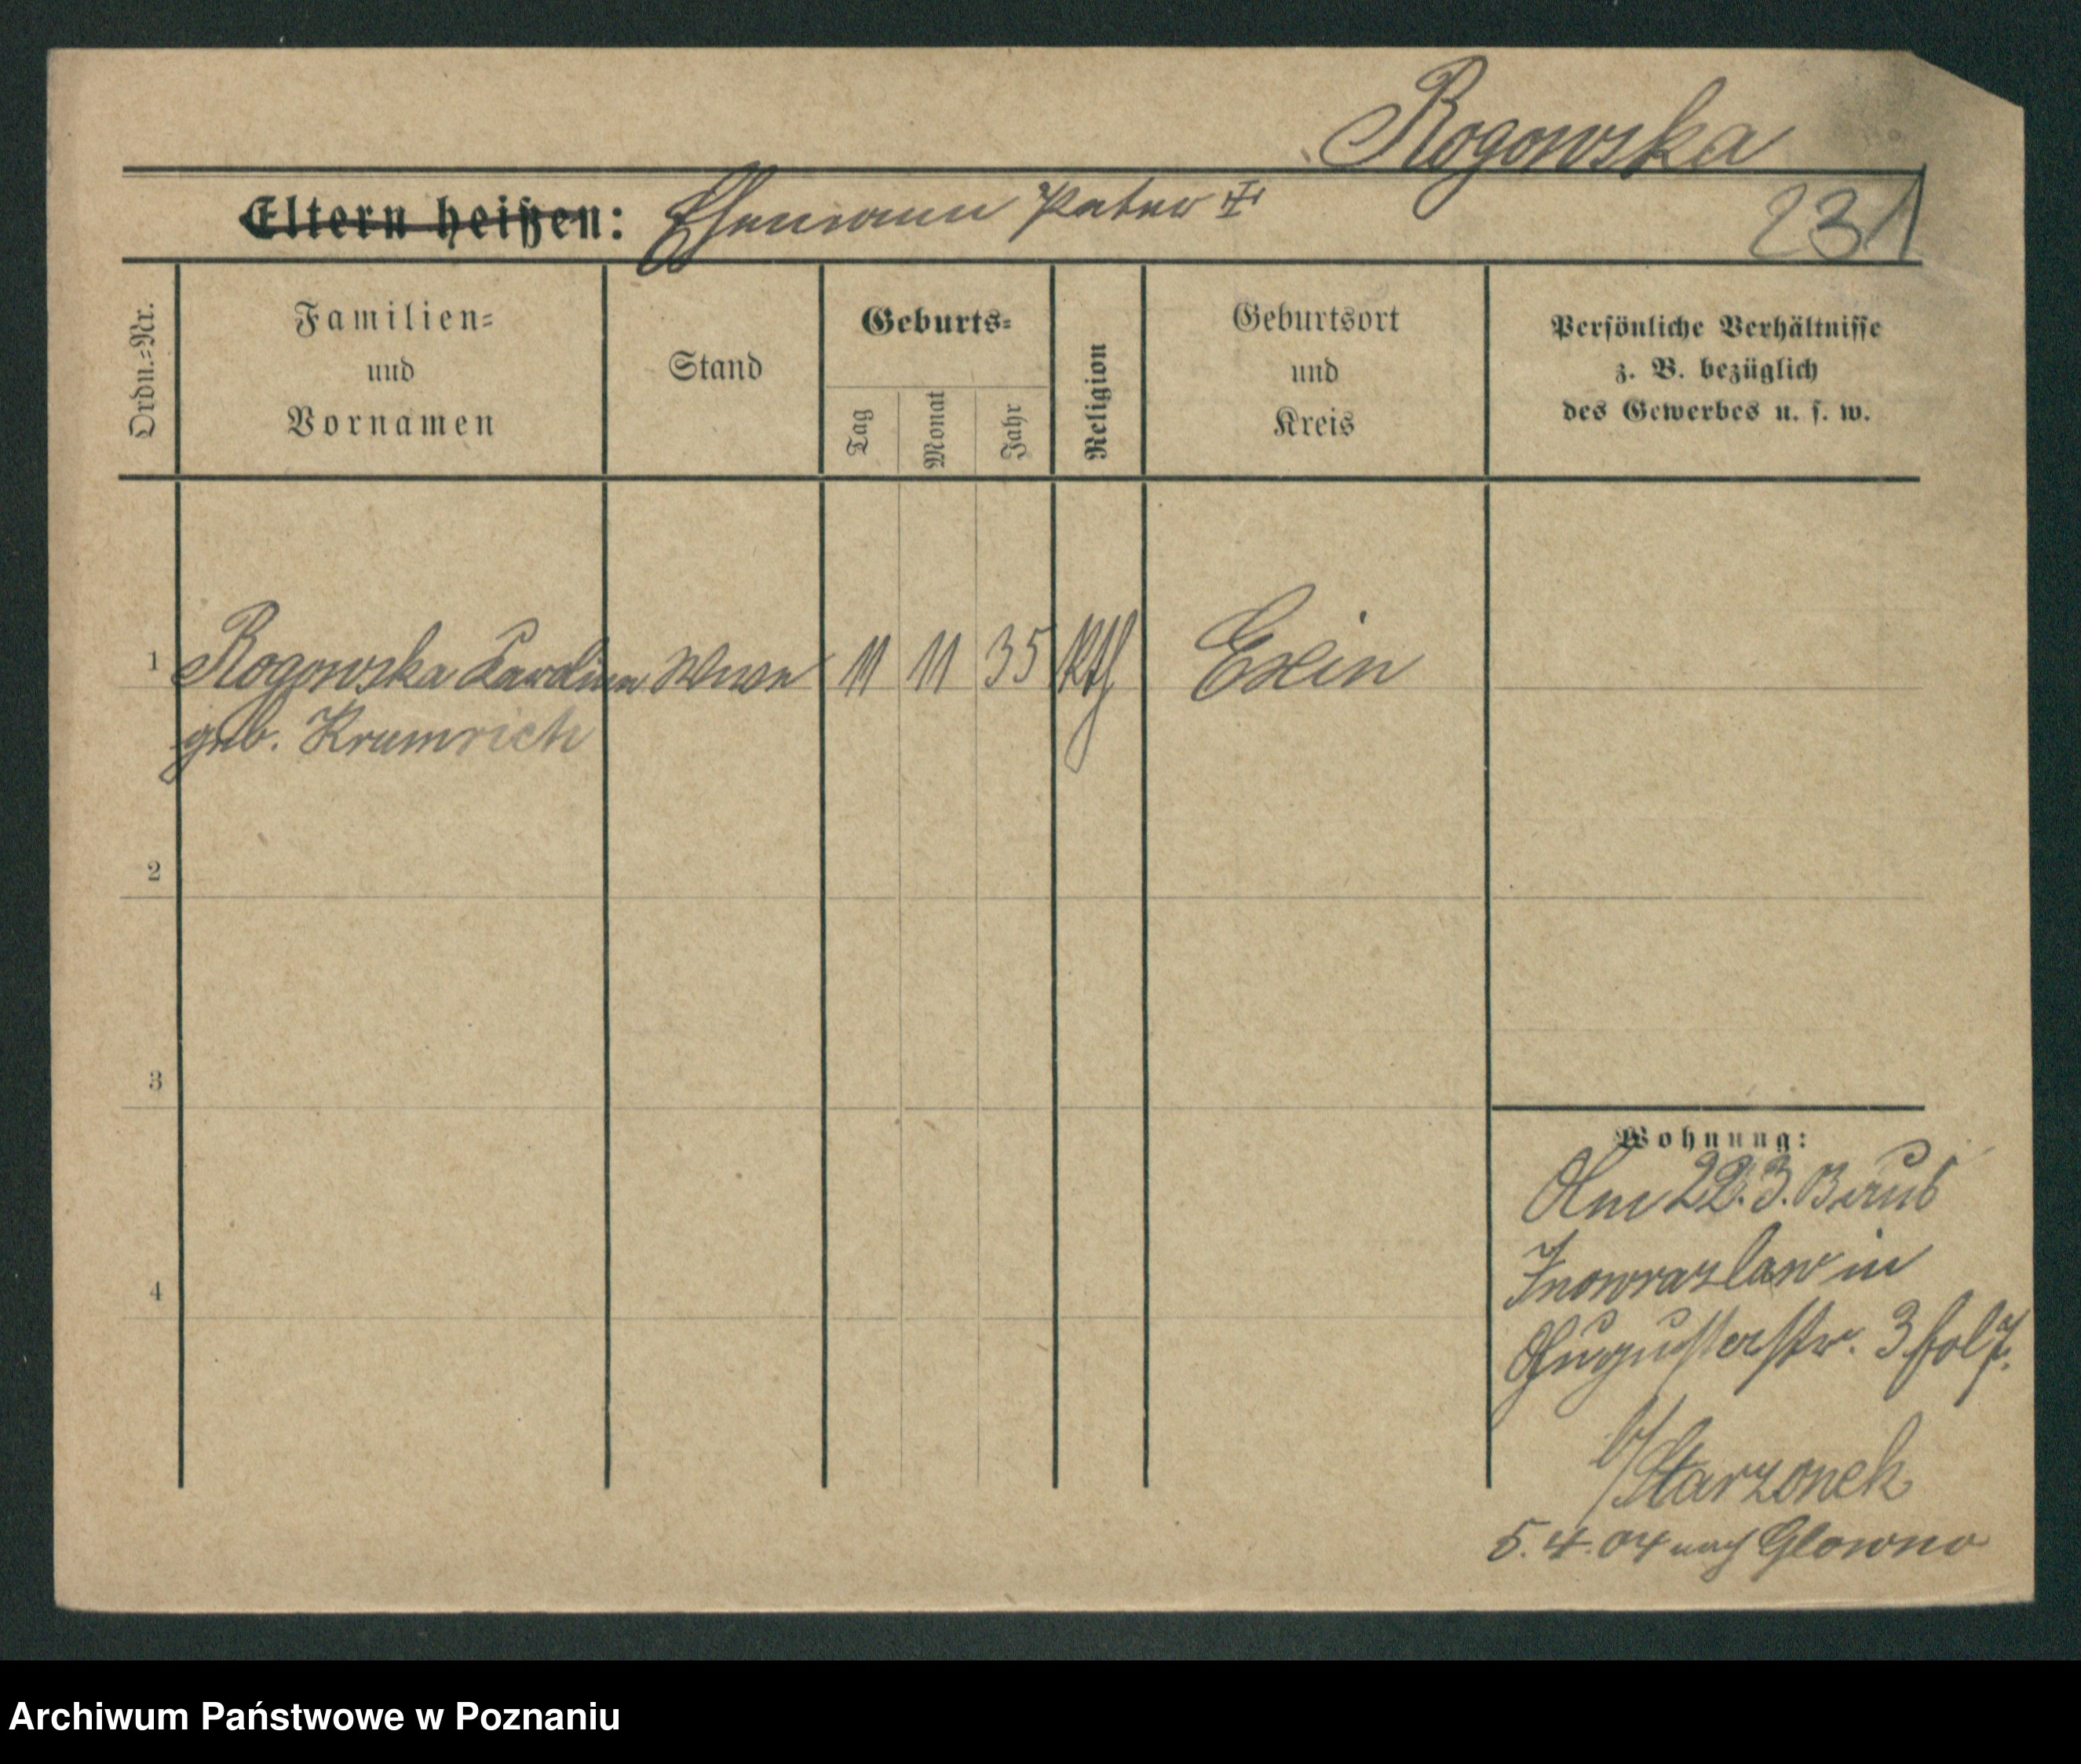 Rogowska
Eltern heißen: Ehemann Peter ‡
231
Ordn.=Nr.
Familien=
und
Vornamen
Stand
Geburts=
Tag
Monat
Jahr
Religion
Geburtsort
und
Kreis
Persönliche Verhältnisse
z. B. bezüglich
des Gewerbes u. s. w.
1 Rogowska Karoline Wwe 11 11 35 kth Exin
geb. Krumrich
2
3
4
Wohnung:
Am 22.3. aus
Inowrazlaw in
Augustastr. 3
b/ Starzonek
5.4.04 nach Glowno
Archiwum Państwowe w Poznaniu